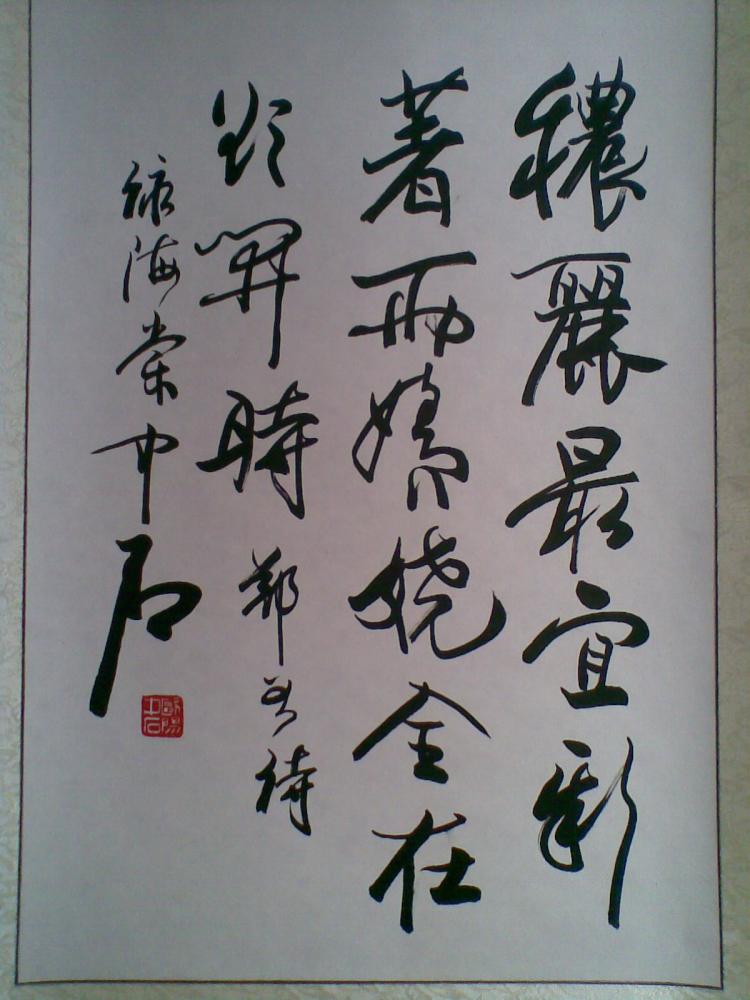 穠麗最宜新
著雨嬌嬈全在
欲開時 鄭谷詩
詠海棠 中石
歐陽中石